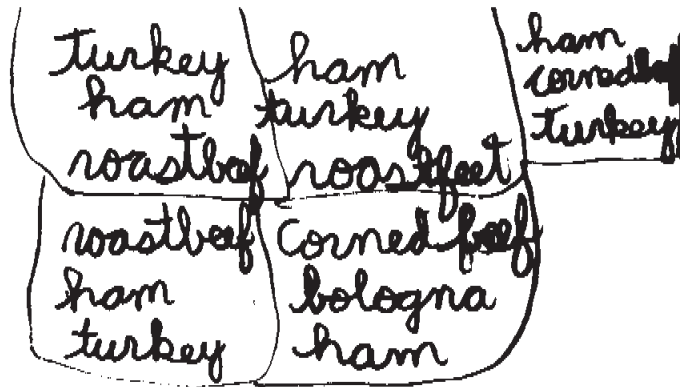 turkey
ham
roastbeef
ham
turkey
roastfeet
ham
corned
turkey
roastbeef
ham
turkey
Corned beef
bologna
ham